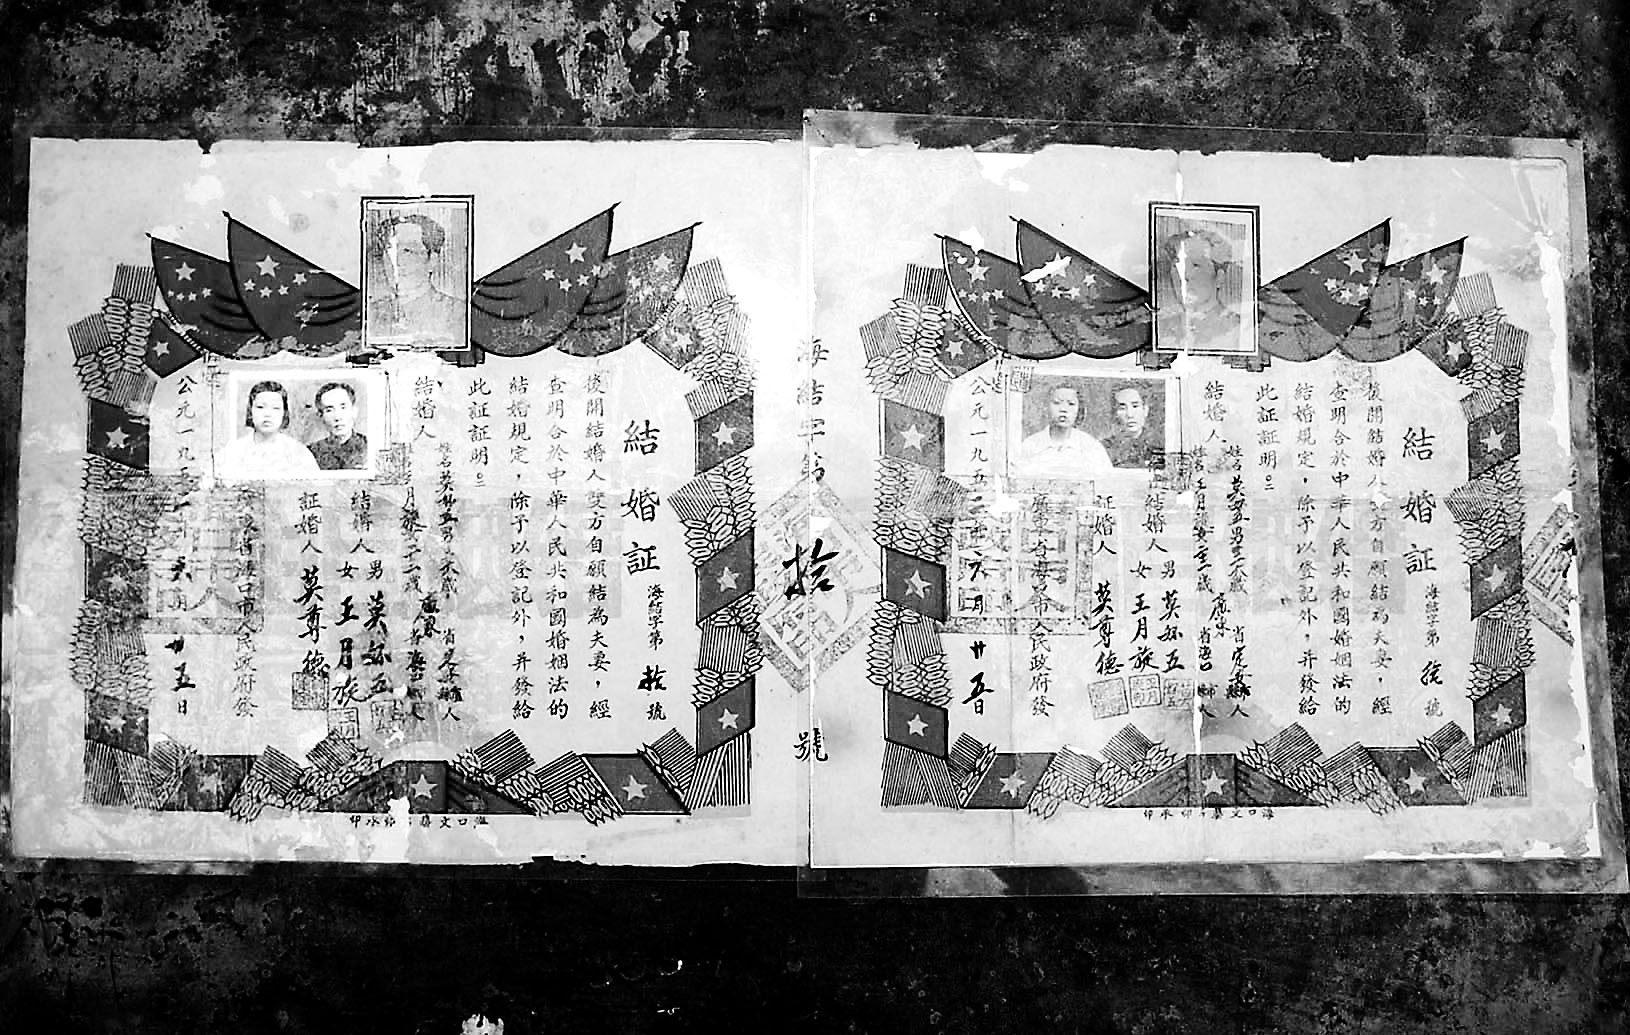 結婚証
海結字第拾號
後開結婚人雙方自願結為夫妻，經
查明合於中華人民共和國婚姻法的
結婚規定，除予以登記外，并發給
此証証明。
結婚人
姓名
男
歲
省
人
月
女
歲
省海口
人
結婚人
男
莫
五
女
王月旋
証婚人
莫尊德
省海口市人民政府發
公元一九五
六月廿五日
海口文
承印
海結字第拾號
結婚証
海結字第拾號
後開結婚人雙方自願結為夫妻，經
查明合於中華人民共和國婚姻法的
結婚規定，除予以登記外，并發給
此証証明。
結婚人
姓名莫
五男
歲
廣東省定安縣人
姓名王月旋女
歲
省海口市人
結婚人
男
莫
五
女
王月旋
証婚人
莫尊德
廣東省海口市人民政府發
公元一九五
年六月廿五日
海口文
承印